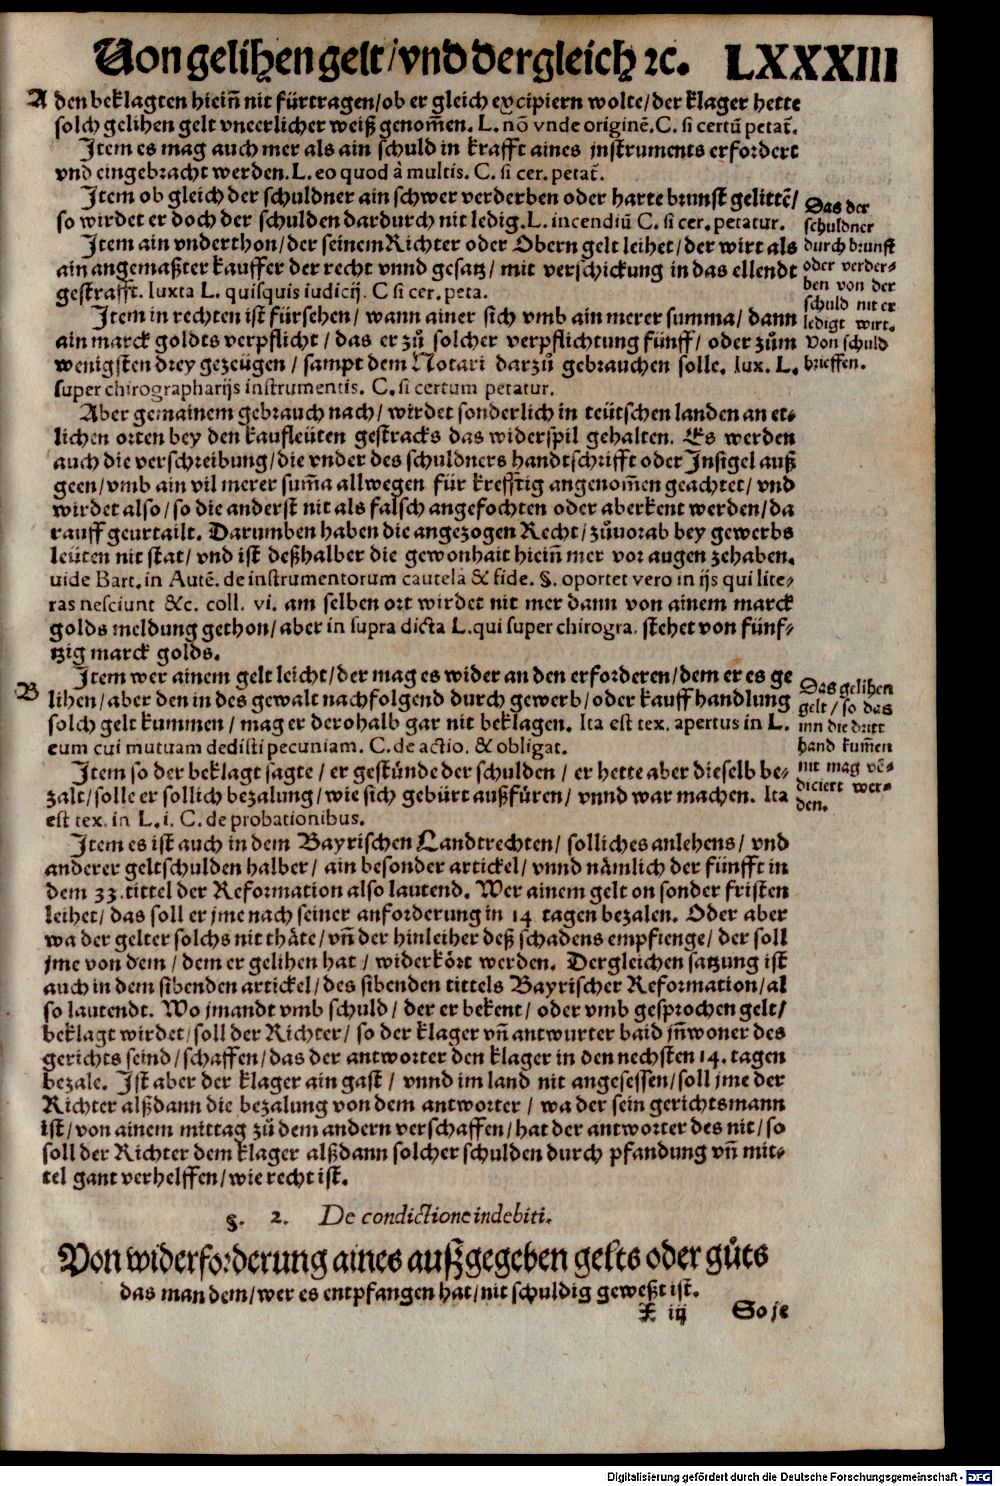 Von gelihen gelt/vnd dergleich ⁊c. LXXXIII
A den beklagten hieiñ nit fürtragen/ob er gleich excipiern wolte/der klager hette
solch gelihen gelt vneerlicher weiß genom̃en. L. nõ vnde originẽ. C. si certũ petat᷒.
Item es mag auch mer als ain schuld in krafft aines instruments erfordert
vnd eingebracht werden. L. eo quod à multis. C. si cer. petat᷒.
Item ob gleich der schuldner ain schwer verderben oder harte brunst gelittẽ/
so wirdet er doch der schulden dardurch nit ledig. L. incendiũ C. si cer. petatur.
Das der
schuldner
durch brunst
oder verder⸗
ben von der
schuld nit er
ledigt wirt.
Von schuld
brieffen.
Item ain vnderthon/der seinem Richter oder Obern gelt leihet/der wirt als
ain angemaßter kauffer der recht vnnd gesatz/ mit verschickung in das ellendt
gestrafft. Iuxta L. quisquis iudicij. C si cer. peta.
Item in rechten ist fürsehen/ wann ainer sich vmb ain merer summa/ dann
ain marck goldts verpflicht/ das er zů solcher verpflichtung fünff/ oder zům
wenigsten drey gezeügen/ sampt dem Notari darzů gebrauchen solle. Iux. L.
super chirographarijs instrumentis. C. si certum petatur.
Aber gemainem gebrauch nach/ wirdet sonderlich in teütschen landen an et⸗
lichen orten bey den kaufleüten gestracks das widerspil gehalten. Es werden
auch die verschreibung/die vnder des schuldners handtschrifft oder Insigel auß
geen/vmb ain vil merer sum̃a allwegen für krefftig angenom̃en geachtet/ vnd
wirdet also/so die anderst nit als falsch angefochten oder aberkent werden/da
rauff geurtailt. Darumben haben die angezogen Recht/ zůuorab bey gewerbs
leüten nit stat/ vnd ist deßhalber die gewonhait hieiñ mer vor augen zehaben.
uide Bart. in Autẽ. de instrumentorum cautela & fide. §. oportet vero in ijs qui lite⸗
ras nesciunt &c. coll. vi. am selben ort wirdet nit mer dann von ainem marck
golds meldung gethon/aber in supra dicta L. qui super chirogra. stehet von fünf⸗
tzig marck golds.
B Item wer ainem gelt leicht/der mag es wider an den erforderen/dem er es ge
lihen/aber den in des gewalt nachfolgend durch gewerb/oder kauffhandlung
solch gelt kummen/ mag er derohalb gar nit beklagen. Ita est tex. apertus in L.
cum cui mutuam dedisti pecuniam. C. de actio. & obligat.
Das gelihen
gelt/ so das
inn die dritt
hand kum̃en
nit mag vẽ⸗
diciert wer⸗
den.
Item so der beklagt sagte/ er gestünde der schulden/ er hette aber dieselb be⸗
zalt/solle er sollich bezalung/wie sich gebürt außfüren/ vnnd war machen. Ita
est tex. in L. i. C. de probationibus.
Item es ist auch in dem Bayrischen Landtrechten/ solliches anlehens/ vnd
anderer geltschulden halber/ ain besonder artickel/ vnnd nämlich der fünfft in
dem 33. tittel der Reformation also lautend. Wer ainem gelt on sonder fristen
leihet/ das soll er jme nach seiner anforderung in 14 tagen bezalen. Oder aber
wa der gelter solchs nit thäte/ vñ der hinleiher deß schadens empfienge/ der soll
jme von dem/ dem er gelihen hat/ widerkört werden. Dergleichen satzung ist
auch in dem sibenden artickel/ des sibenden tittels Bayrischer Reformation/al
so lautendt. Wo jmandt vmb schuld/ der er bekent/ oder vmb gesprochen gelt/
beklagt wirdet/ soll der Richter/ so der klager vñ antwurter baid jñwoner des
gerichts seind/schaffen/das der antworter den klager in den nechsten 14. tagen
bezale. Ist aber der klager ain gast/ vnnd im land nit angesessen/soll jme der
Richter alßdann die bezalung von dem antworter/ wa der sein gerichtsmann
ist/von ainem mittag zů dem andern verschaffen/hat der antworter des nit/so
soll der Richter dem klager alßdann solcher schulden durch pfandung vñ mit⸗
tel gant verhelffen/wie recht ist.
§. 2. De condictione indebiti.
Von widerforderung aines außgegeben gelts oder gůts
das man dem/wer es entpfangen hat/nit schuldig geweßt ist.
X iij So je
Digitalisierung gefördert durch die Deutsche Forschungsgemeinschaft - DFG